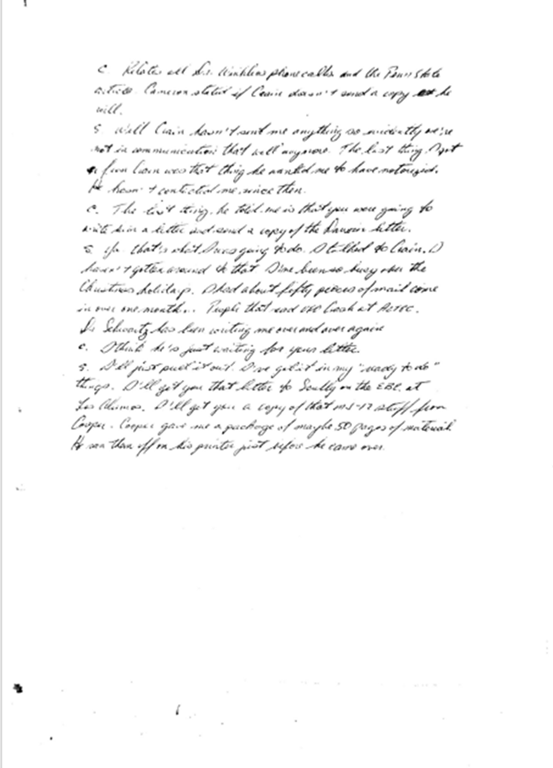 C. Relates all Dr. Winkler's phone calls and the Penn State
article. Cameron stated if Crain doesn't send a copy he
will.
S. Well Crain hasn't sent me anything so evidently we're
not in communication that well anymore. The last thing I got
from Crain was that thing he wanted me to have notorized.
He hasn't contacted me since then.
C. The last thing he told me is that you were going to
write him a letter and send a copy of the letter.
S. that's what I was going to do. I talked to Crain. I
haven't gotten around to that I've been so busy over the
Christmas holidays. I had about fifty pieces of mail come
in over one month.. People that read book at Aztec.
Dr Schwartz has been writing me over and over again
C. I think he's just waiting for your letter.
S. I'll just pull it out. I've got it in my "ready to do"
things. I'll get you that letter to Scully on the EBE at
Los Alamos. I'll get you a copy of that stuff from
Cooper. Cooper gave me a package of maybe 50 pages of material
He ran them off on his printer just before he came over.